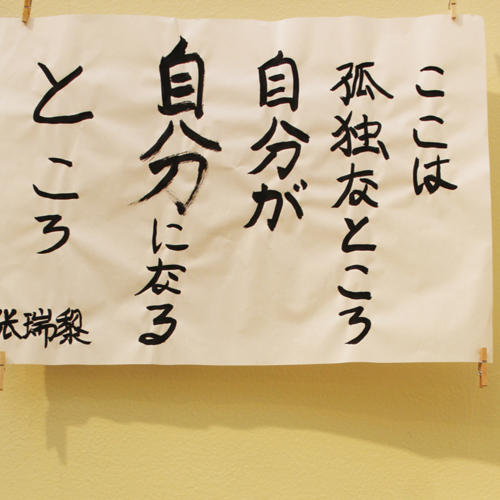 ここは
孤独なところ
自分が
自分になる
ところ
张瑞黎